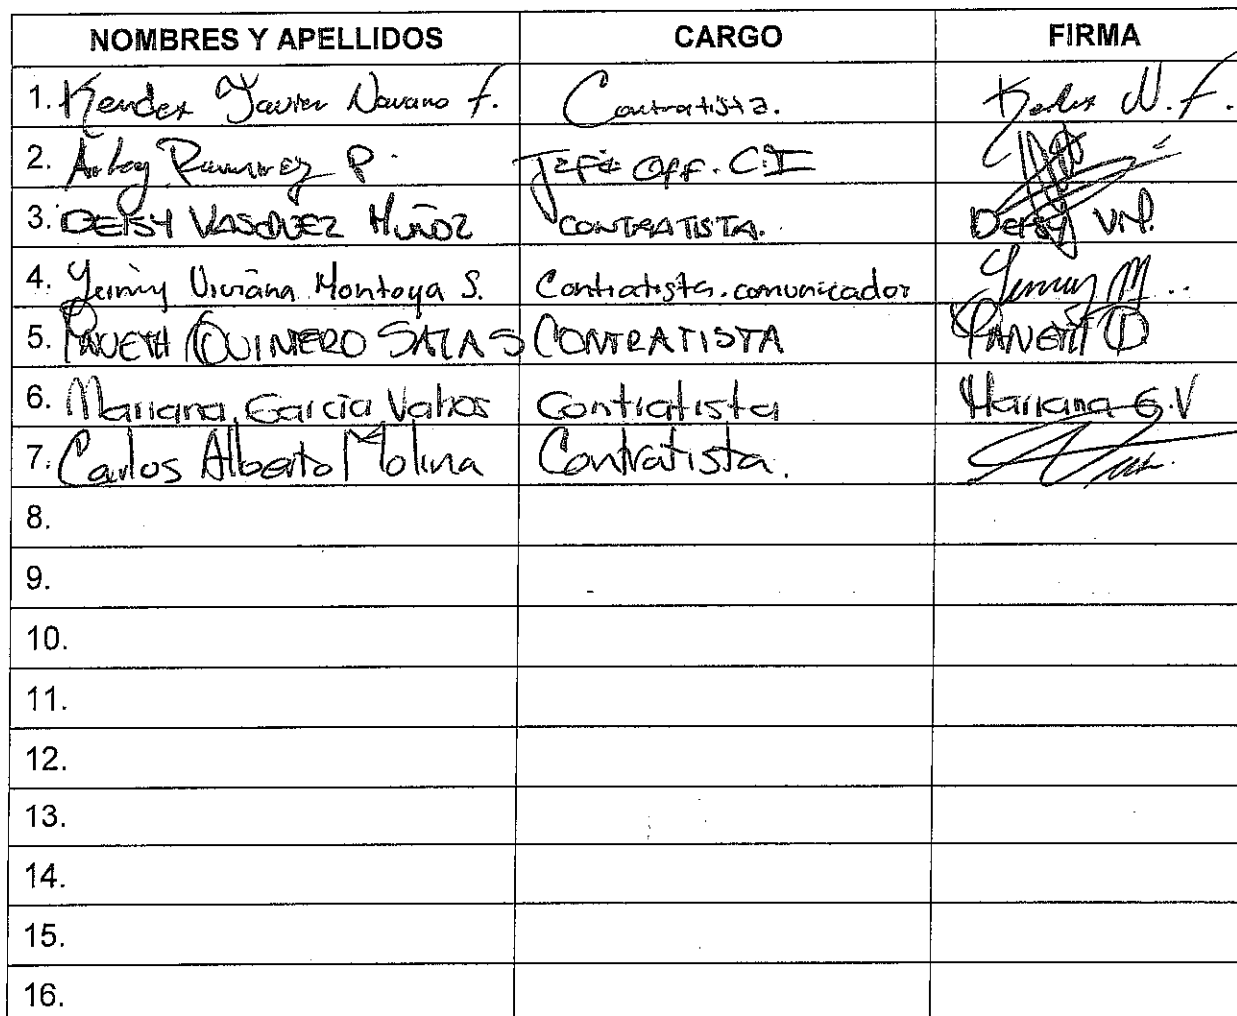 NOMBRES Y APELLIDOS CARGO FIRMA
1. Kender Javier Navarro f. Contratista. Kender N. f.
2. Arley Ramirez P. Jefe Off. C.I
3. DEISY VASQUEZ MUÑOZ CONTRATISTA. Deisy V.M.
4. Yeimy Viviana Montoya S. Contratista. comunicador Yeimy M..
5. YANETH QUINTERO SALAS CONTRATISTA YANETH Q
6. Mariana Garcia Vahos Contratista Mariana G.V
7. Carlos Alberto Molina Contratista.
8.
9.
10.
11.
12.
13.
14.
15.
16.